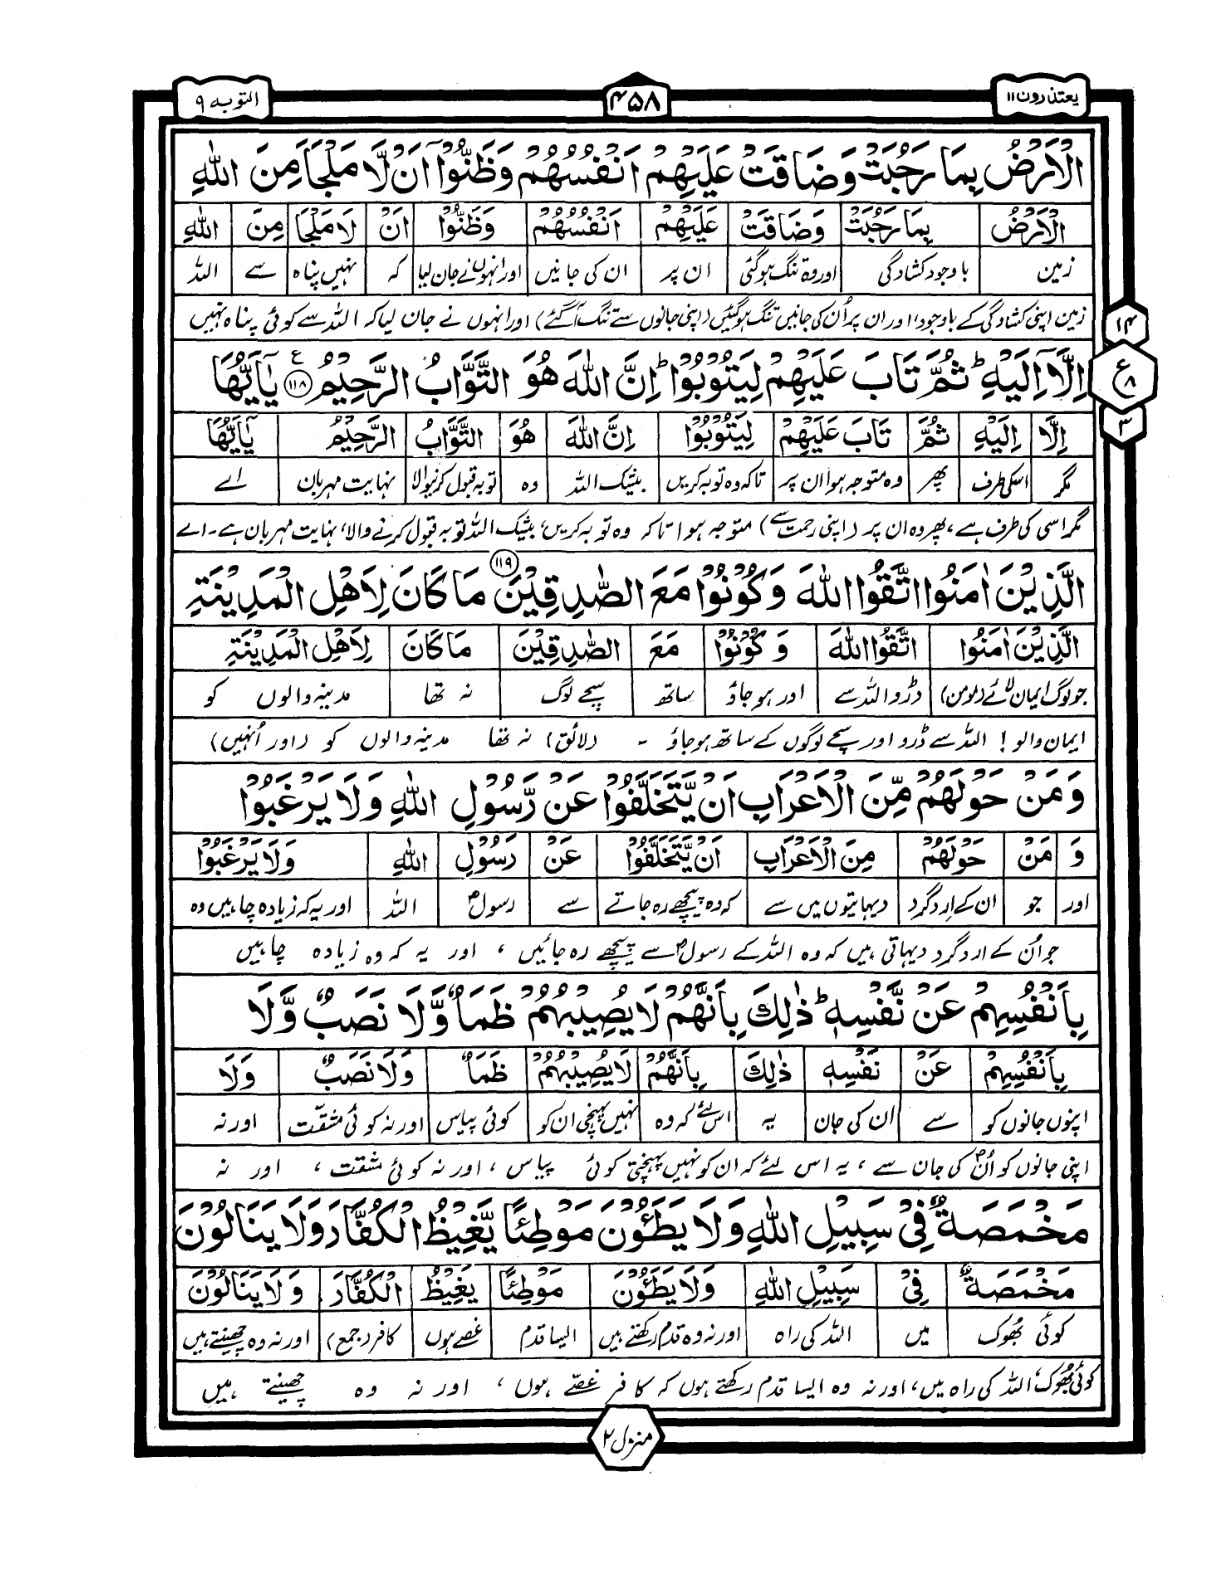 یعتذرون ۱۱
۴۵۸
التوبہ ۹
الْاَرْضُ بِمَا رَحُبَتْ وَضَاقَتْ عَلَيْهِمْ اَنْفُسُهُمْ وَظَنُّوْۤا اَنْ لَّا مَلْجَاَ مِنَ اللّٰهِ
الْاَرْضُ بِمَا رَحُبَتْ وَضَاقَتْ عَلَيْهِمْ اَنْفُسُهُمْ وَظَنُّوْا اَنْ لَا مَلْجَاَ مِنَ اللّٰهِ
زمین باوجود کشادگی اور وہ تنگ ہوگئی ان پر ان کی جانیں اور انہوں نے جان لیا کہ نہیں پناہ سے اللہ
زمین اپنی کشادگی کے باوجود، اور ان پر اُن کی جانیں تنگ ہوگئیں (اپنی جانوں سے تنگ آگئے) اور انہوں نے جان لیا کہ اللہ سے کوئی پناہ نہیں
۱۴
ع
۸
۳
اِلَّاۤ اِلَيْهِ ؕ ثُمَّ تَابَ عَلَيْهِمْ لِيَتُوْبُوْا ؕ اِنَّ اللّٰهَ هُوَ التَّوَّابُ الرَّحِيْمُ ۱۱۸ ع يٰۤاَيُّهَا
اِلَّا اِلَيْهِ ثُمَّ تَابَ عَلَيْهِمْ لِيَتُوْبُوْا اِنَّ اللّٰهَ هُوَ التَّوَّابُ الرَّحِيْمُ يٰۤاَيُّهَا
مگر اسکی طرف پھر وہ متوجہ ہوا ان پر تاکہ وہ توبہ کریں بیشک اللہ وہ توبہ قبول کرنیوالا نہایت مہربان اے
مگر اسی کی طرف ہے، پھر وہ ان پر (اپنی رحمت سے) متوجہ ہوا تاکہ وہ توبہ کریں، بیشک اللہ توبہ قبول کرنے والا، نہایت مہربان ہے۔ اے
الَّذِيْنَ اٰمَنُوا اتَّقُوا اللّٰهَ وَكُوْنُوْا مَعَ الصّٰدِقِيْنَ ۱۱۹ مَا كَانَ لِاَهْلِ الْمَدِيْنَةِ
الَّذِيْنَ اٰمَنُوْا اتَّقُوا اللّٰهَ وَكُوْنُوْا مَعَ الصّٰدِقِيْنَ مَا كَانَ لِاَهْلِ الْمَدِيْنَةِ
جو لوگ ایمان لائے (مومن) ڈرو اللہ سے اور ہوجاؤ ساتھ سچے لوگ نہ تھا مدینہ والوں کو
ایمان والو! اللہ سے ڈرو اور سچے لوگوں کے ساتھ ہوجاؤ۔ (لائق) نہ تھا مدینہ والوں کو (اور اُنہیں)
وَمَنْ حَوْلَهُمْ مِّنَ الْاَعْرَابِ اَنْ يَّتَخَلَّفُوْا عَنْ رَّسُوْلِ اللّٰهِ وَلَا يَرْغَبُوْا
وَ مَنْ حَوْلَهُمْ مِنَ الْاَعْرَابِ اَنْ يَّتَخَلَّفُوْا عَنْ رَسُوْلِ اللّٰهِ وَلَا يَرْغَبُوْا
اور جو ان کے اردگرد دیہاتیوں میں سے کہ وہ پیچھے رہ جاتے سے رسولؐ اللہ اور یہ کہ زیادہ چاہیں وہ
جو اُن کے اردگرد دیہاتی ہیں کہ وہ اللہ کے رسولؐ سے پیچھے رہ جائیں، اور یہ کہ وہ زیادہ چاہیں
بِاَنْفُسِهِمْ عَنْ نَّفْسِهٖ ؕ ذٰلِكَ بِاَنَّهُمْ لَا يُصِيْبُهُمْ ظَمَاٌ وَّلَا نَصَبٌ وَّلَا
بِاَنْفُسِهِمْ عَنْ نَفْسِهٖ ذٰلِكَ بِاَنَّهُمْ لَا يُصِيْبُهُمْ ظَمَاٌ وَلَا نَصَبٌ وَلَا
اپنوں جانوں کو سے ان کی جان یہ اس لئے کہ وہ نہیں پہنچی ان کو کوئی پیاس اور نہ کوئی مشقت اور نہ
اپنی جانوں کو اُنؐ کی جان سے، یہ اس لئے کہ ان کو نہیں پہنچتی کوئی پیاس، اور نہ کوئی مشقت، اور نہ
مَخْمَصَةٌ فِيْ سَبِيْلِ اللّٰهِ وَلَا يَطَـُٔوْنَ مَوْطِئًا يَّغِيْظُ الْكُفَّارَ وَلَا يَنَالُوْنَ
مَخْمَصَةٌ فِيْ سَبِيْلِ اللّٰهِ وَلَا يَطَـُٔوْنَ مَوْطِئًا يَغِيْظُ الْكُفَّارَ وَلَا يَنَالُوْنَ
کوئی بھوک میں اللہ کی راہ اور نہ وہ قدم رکھتے ہیں ایسا قدم غصے ہوں کافر (جمع) اور نہ وہ چھینتے ہیں
کوئی بھوک، اللہ کی راہ میں، اور نہ وہ ایسا قدم رکھتے ہوں کہ کافر غصے ہوں، اور نہ وہ چھینتے ہیں
منزل ۲